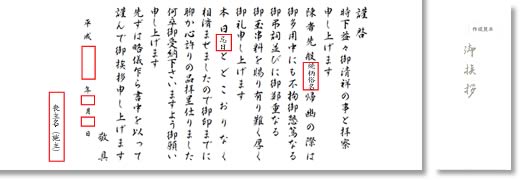 謹啓
時下益々御清祥の事と拝察
申し上げます
陳者先般続柄俗名帰幽の際は
御多用中にも不拘御懇篤なる
御弔詞並びに御鄭重なる
御玉串料を賜り有り難く厚く
御礼申し上げます
本日忌日とどこおりなく
相済ませましたので御印までに
聊か心許りの品拝呈仕りました
何卒御受納下さいますよう御願い
申し上げます
先ずは略儀乍ら書中を以って
謹んで御挨拶申し上げます
敬具
平成 年 月 日
喪主名(施主)
作成見本
御挨拶